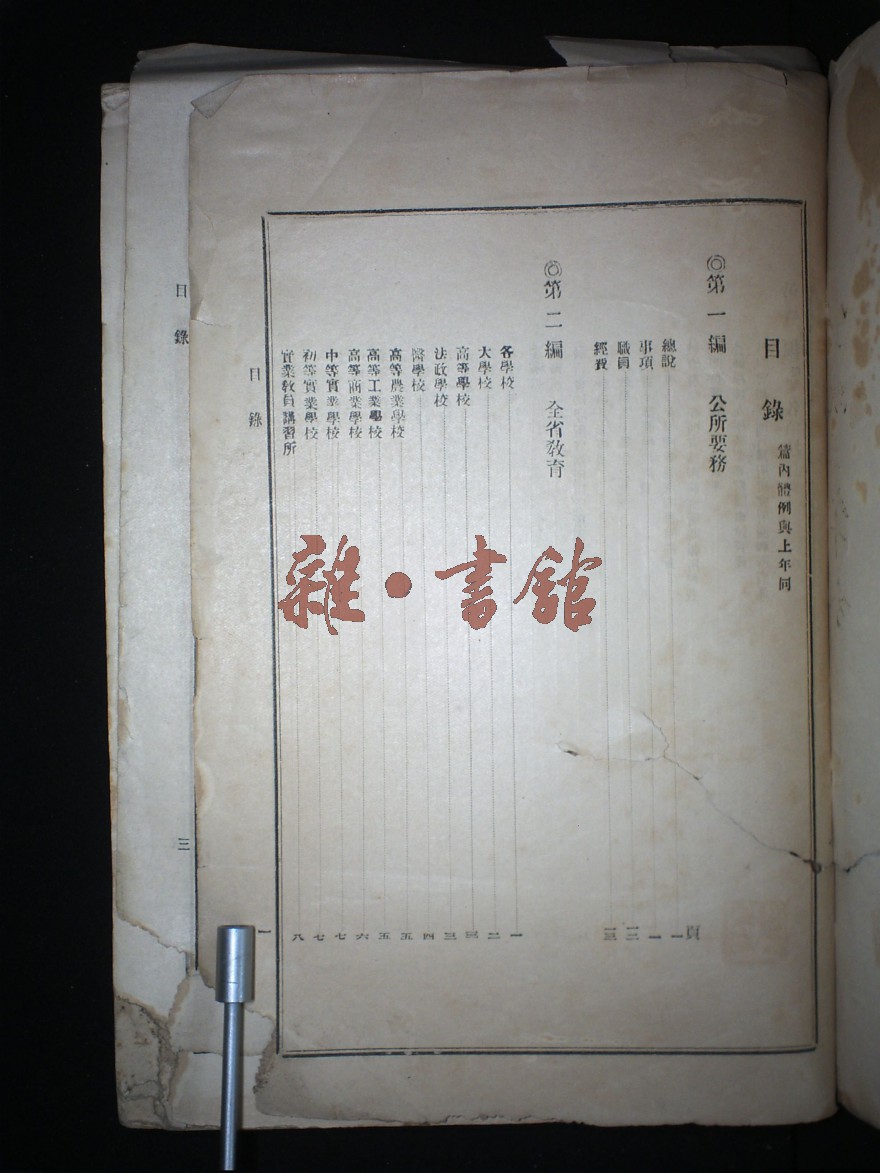 目錄 篇內體例與上年同
◎第一編 公所要務
頁
總說 一
事項 一
職員
經費
◎第二編 全省教育
各學校 一
大學校 二
高等學校 三
法政學校 三
醫學校 四
高等農業學校 五
高等工業學校 五
高等商業學校 六
中等實業學校 七
初等實業學校 七
實業教員講習所 八
目錄 一
目錄 三
雜·書館